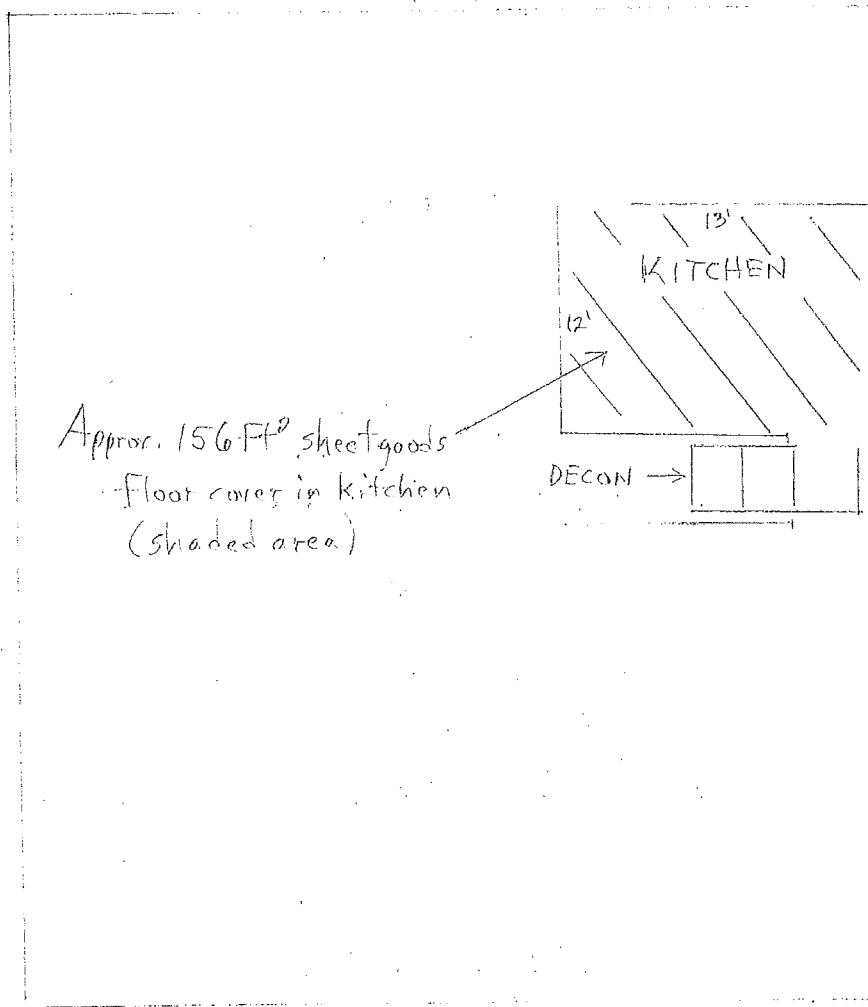 13'
KITCHEN
12'
Approx. 156 Ft² sheet goods
Floor cover in kitchen
(shaded area)
DECON →